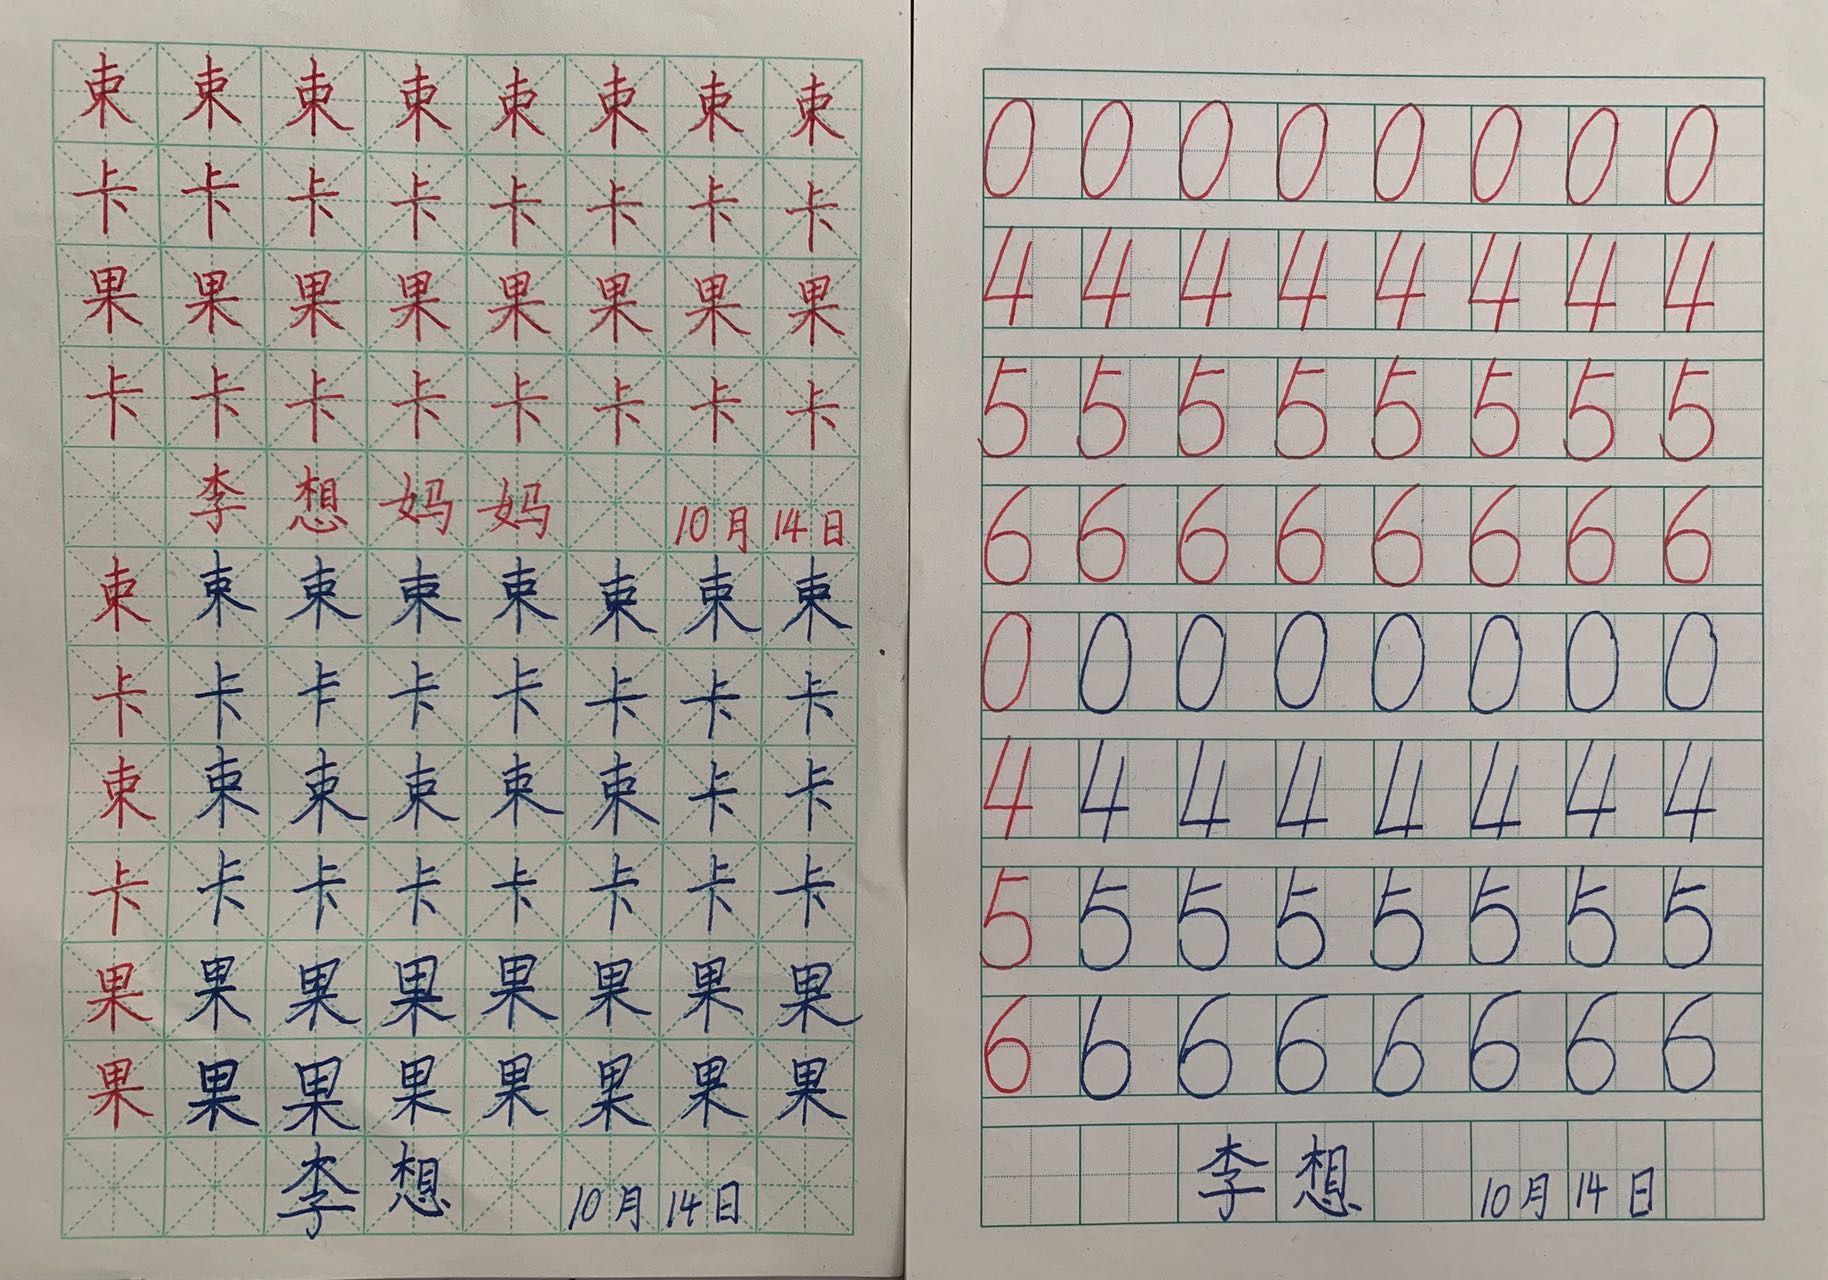 束束束束束束束束
卡卡卡卡卡卡卡卡
果果果果果果果果
卡卡卡卡卡卡卡卡
李想妈妈 10月14日
束束束束束束束束
卡卡卡卡卡卡卡卡
束束束束束束卡卡
卡卡卡卡卡卡卡卡
果果果果果果果果
果果果果果果果果
李想 10月14日
0 0 0 0 0 0 0 0
4 4 4 4 4 4 4 4
5 5 5 5 5 5 5 5
6 6 6 6 6 6 6 6
0 0 0 0 0 0 0 0
4 4 4 4 4 4 4 4
5 5 5 5 5 5 5 5
6 6 6 6 6 6 6 6
李想 10月14日